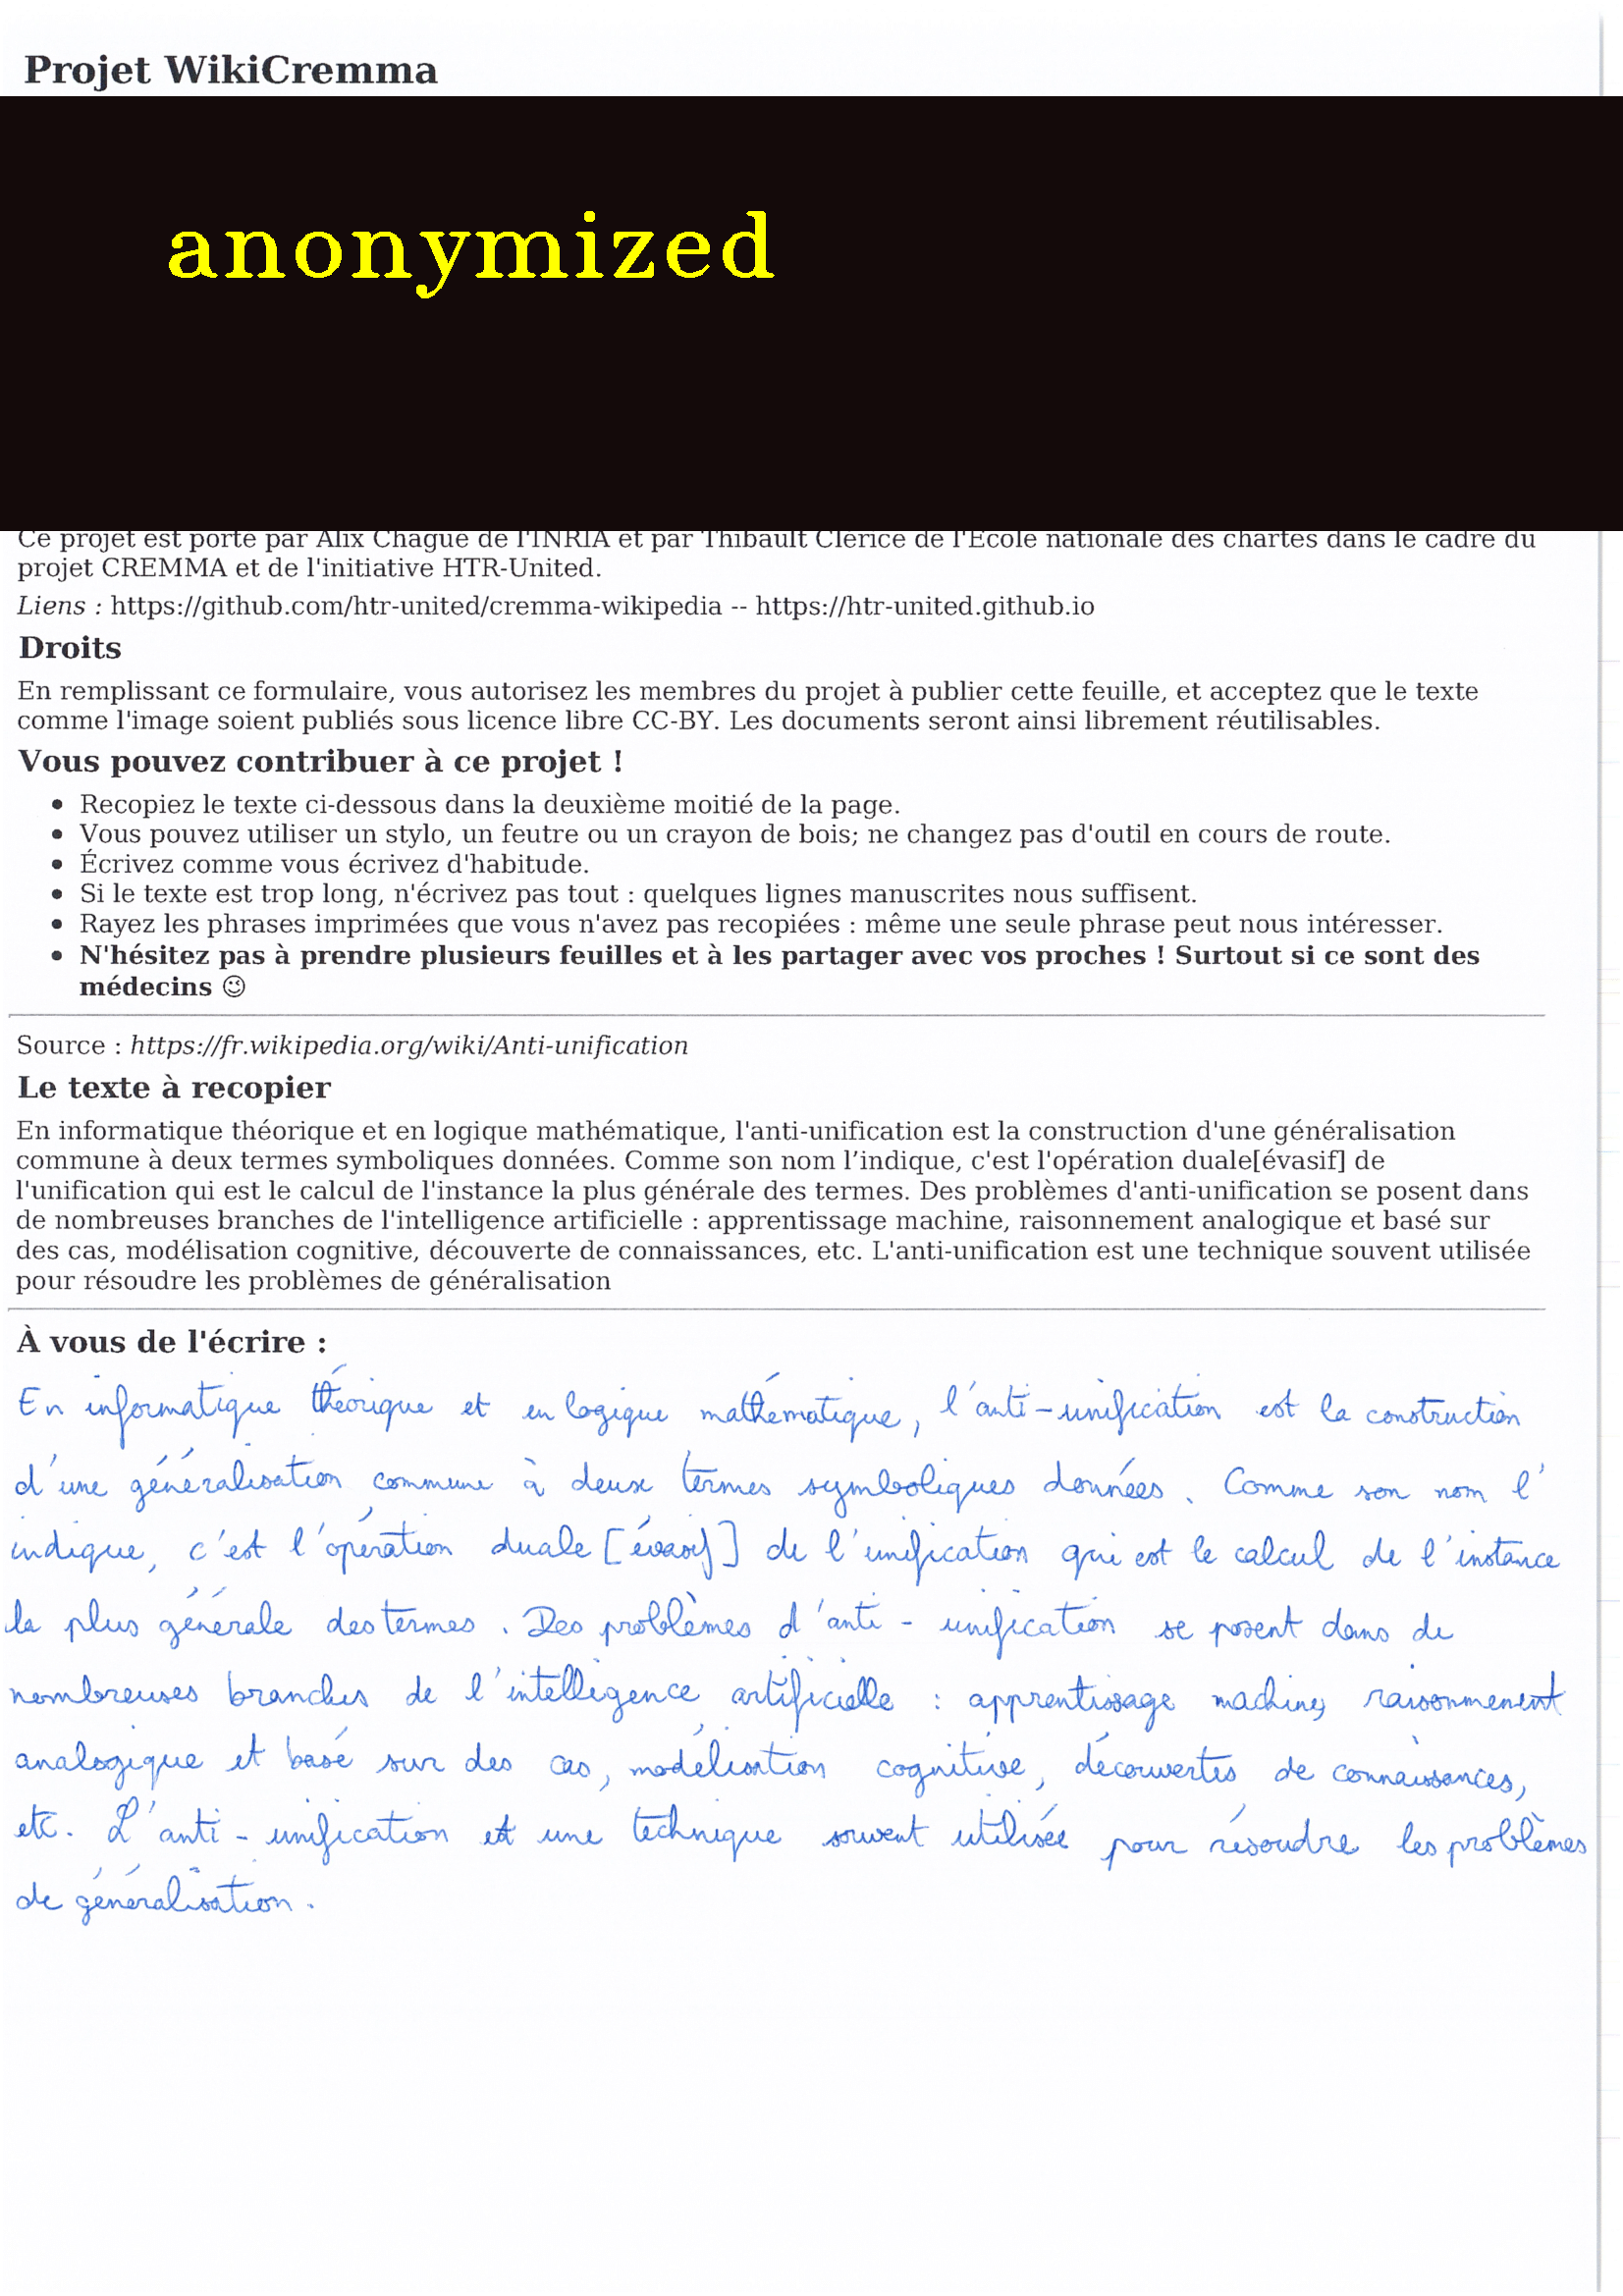 Projet WikiCremma
anonymized
Ce projet est porté par Alix Chagué de l'INRIA et par Thibault Clérice de l'École nationale des chartes dans le cadre du
projet CREMMA et de l'initiative HTR-United.
Liens : https://github.com/htr-united/cremma-wikipedia -- https://htr-united.github.io
Droits
En remplissant ce formulaire, vous autorisez les membres du projet à publier cette feuille, et acceptez que le texte
comme l'image soient publiés sous licence libre CC-BY. Les documents seront ainsi librement réutilisables.
Vous pouvez contribuer à ce projet !
• Recopiez le texte ci-dessous dans la deuxième moitié de la page.
• Vous pouvez utiliser un stylo, un feutre ou un crayon de bois; ne changez pas d'outil en cours de route.
• Écrivez comme vous écrivez d'habitude.
• Si le texte est trop long, n'écrivez pas tout : quelques lignes manuscrites nous suffisent.
• Rayez les phrases imprimées que vous n'avez pas recopiées : même une seule phrase peut nous intéresser.
• N'hésitez pas à prendre plusieurs feuilles et à les partager avec vos proches ! Surtout si ce sont des
médecins ☺
Source : https://fr.wikipedia.org/wiki/Anti-unification
Le texte à recopier
En informatique théorique et en logique mathématique, l'anti-unification est la construction d'une généralisation
commune à deux termes symboliques données. Comme son nom l’indique, c'est l'opération duale[évasif] de
l'unification qui est le calcul de l'instance la plus générale des termes. Des problèmes d'anti-unification se posent dans
de nombreuses branches de l'intelligence artificielle : apprentissage machine, raisonnement analogique et basé sur
des cas, modélisation cognitive, découverte de connaissances, etc. L'anti-unification est une technique souvent utilisée
pour résoudre les problèmes de généralisation
À vous de l'écrire :
En informatique théorique et en logique mathématique, l'anti-unification est la construction
d'une généralisation commune à deux termes symboliques données. Comme son nom l'
indique, c'est l'opération duale [évasif] de l'unification qui est le calcul de l'instance
la plus générale des termes. Des problèmes d'anti-unification se posent dans de
nombreuses branches de l'intelligence artificielle : apprentissage machine, raisonnement
analogique et basé sur des cas, modélisation cognitive, découvertes de connaissances,
etc. L'anti-unification est une technique souvent utilisée pour résoudre les problèmes
de généralisation.